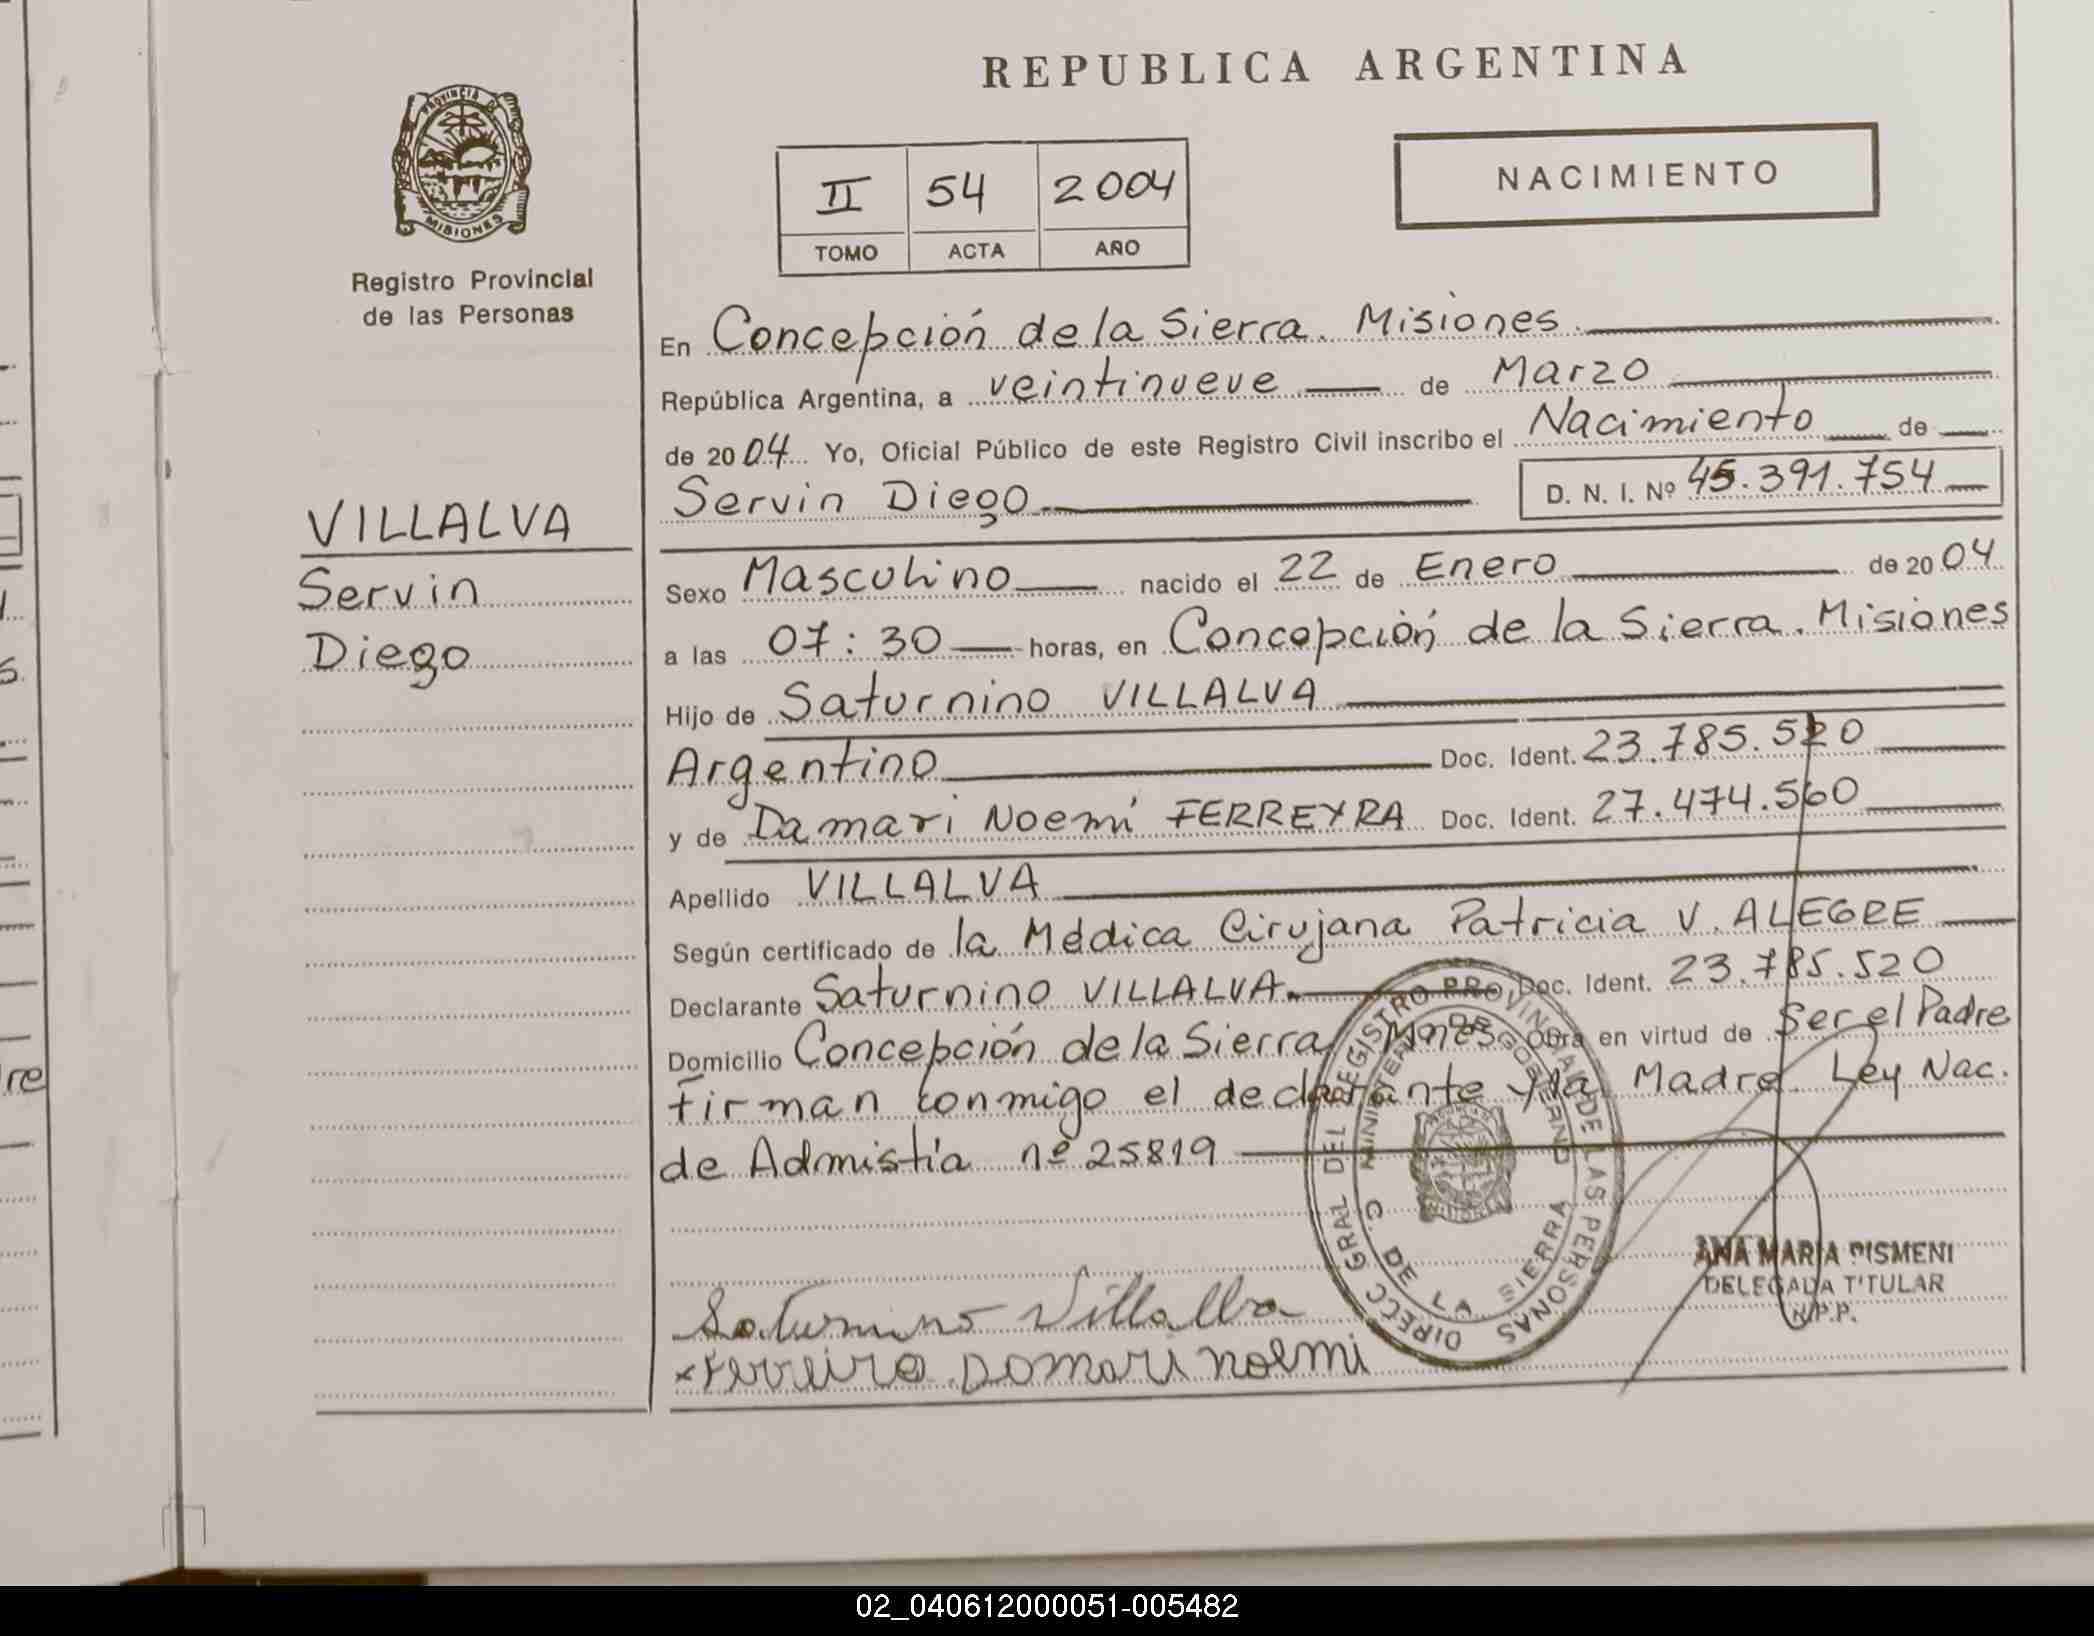 REPUBLICA ARGENTINA
PROVINCIA DE MISIONES
Registro Provincial
de las Personas
II 54 2004
TOMO ACTA AÑO
NACIMIENTO
VILLALVA
Servin
Diego
En Concepción de la Sierra. Misiones.
República Argentina, a veintinueve de Marzo
de 2004 Yo, Oficial Público de este Registro Civil inscribo el Nacimiento de
Servin Diego D. N. I. Nº 45.391.754
Sexo Masculino nacido el 22 de Enero de 2004
a las 07:30 horas, en Concepción de la Sierra. Misiones
Hijo de Saturnino VILLALVA
Argentino Doc. Ident. 23.785.520
y de Damari Noemí FERREYRA Doc. Ident. 27.474.560
Apellido VILLALVA
Según certificado de la Médica Cirujana Patricia V. ALEGRE
Declarante Saturnino VILLALVA. Doc. Ident. 23.785.520
Domicilio Concepción de la Sierra Mnes. Obra en virtud de Ser el Padre
Firman conmigo el declarante y la Madre. Ley Nac.
de Admistía nº 25819
DIRECC GRAL DEL REGISTRO PROVINCIAL DE LAS PERSONAS
MINISTERIO DE GOBIERNO
C. DE LA SIERRA
ANA MARIA PISMENI
DELEGADA TITULAR
R.P.P.
Saturnino Villalba
x Ferreira Damari noemi
re
02_040612000051-005482